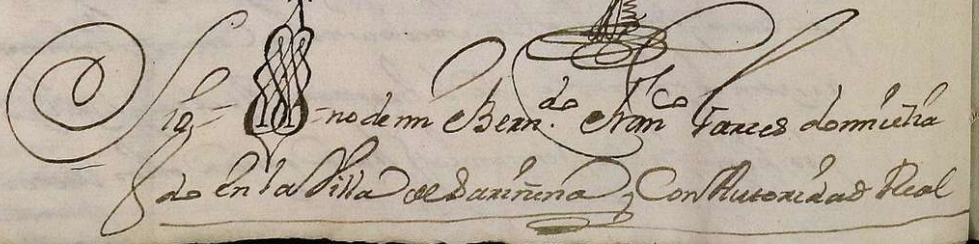 Sig- -no de mi Bern.do Fran.co Farces domicilia
do en la Villa de Sariñena y Con Autoridad Real